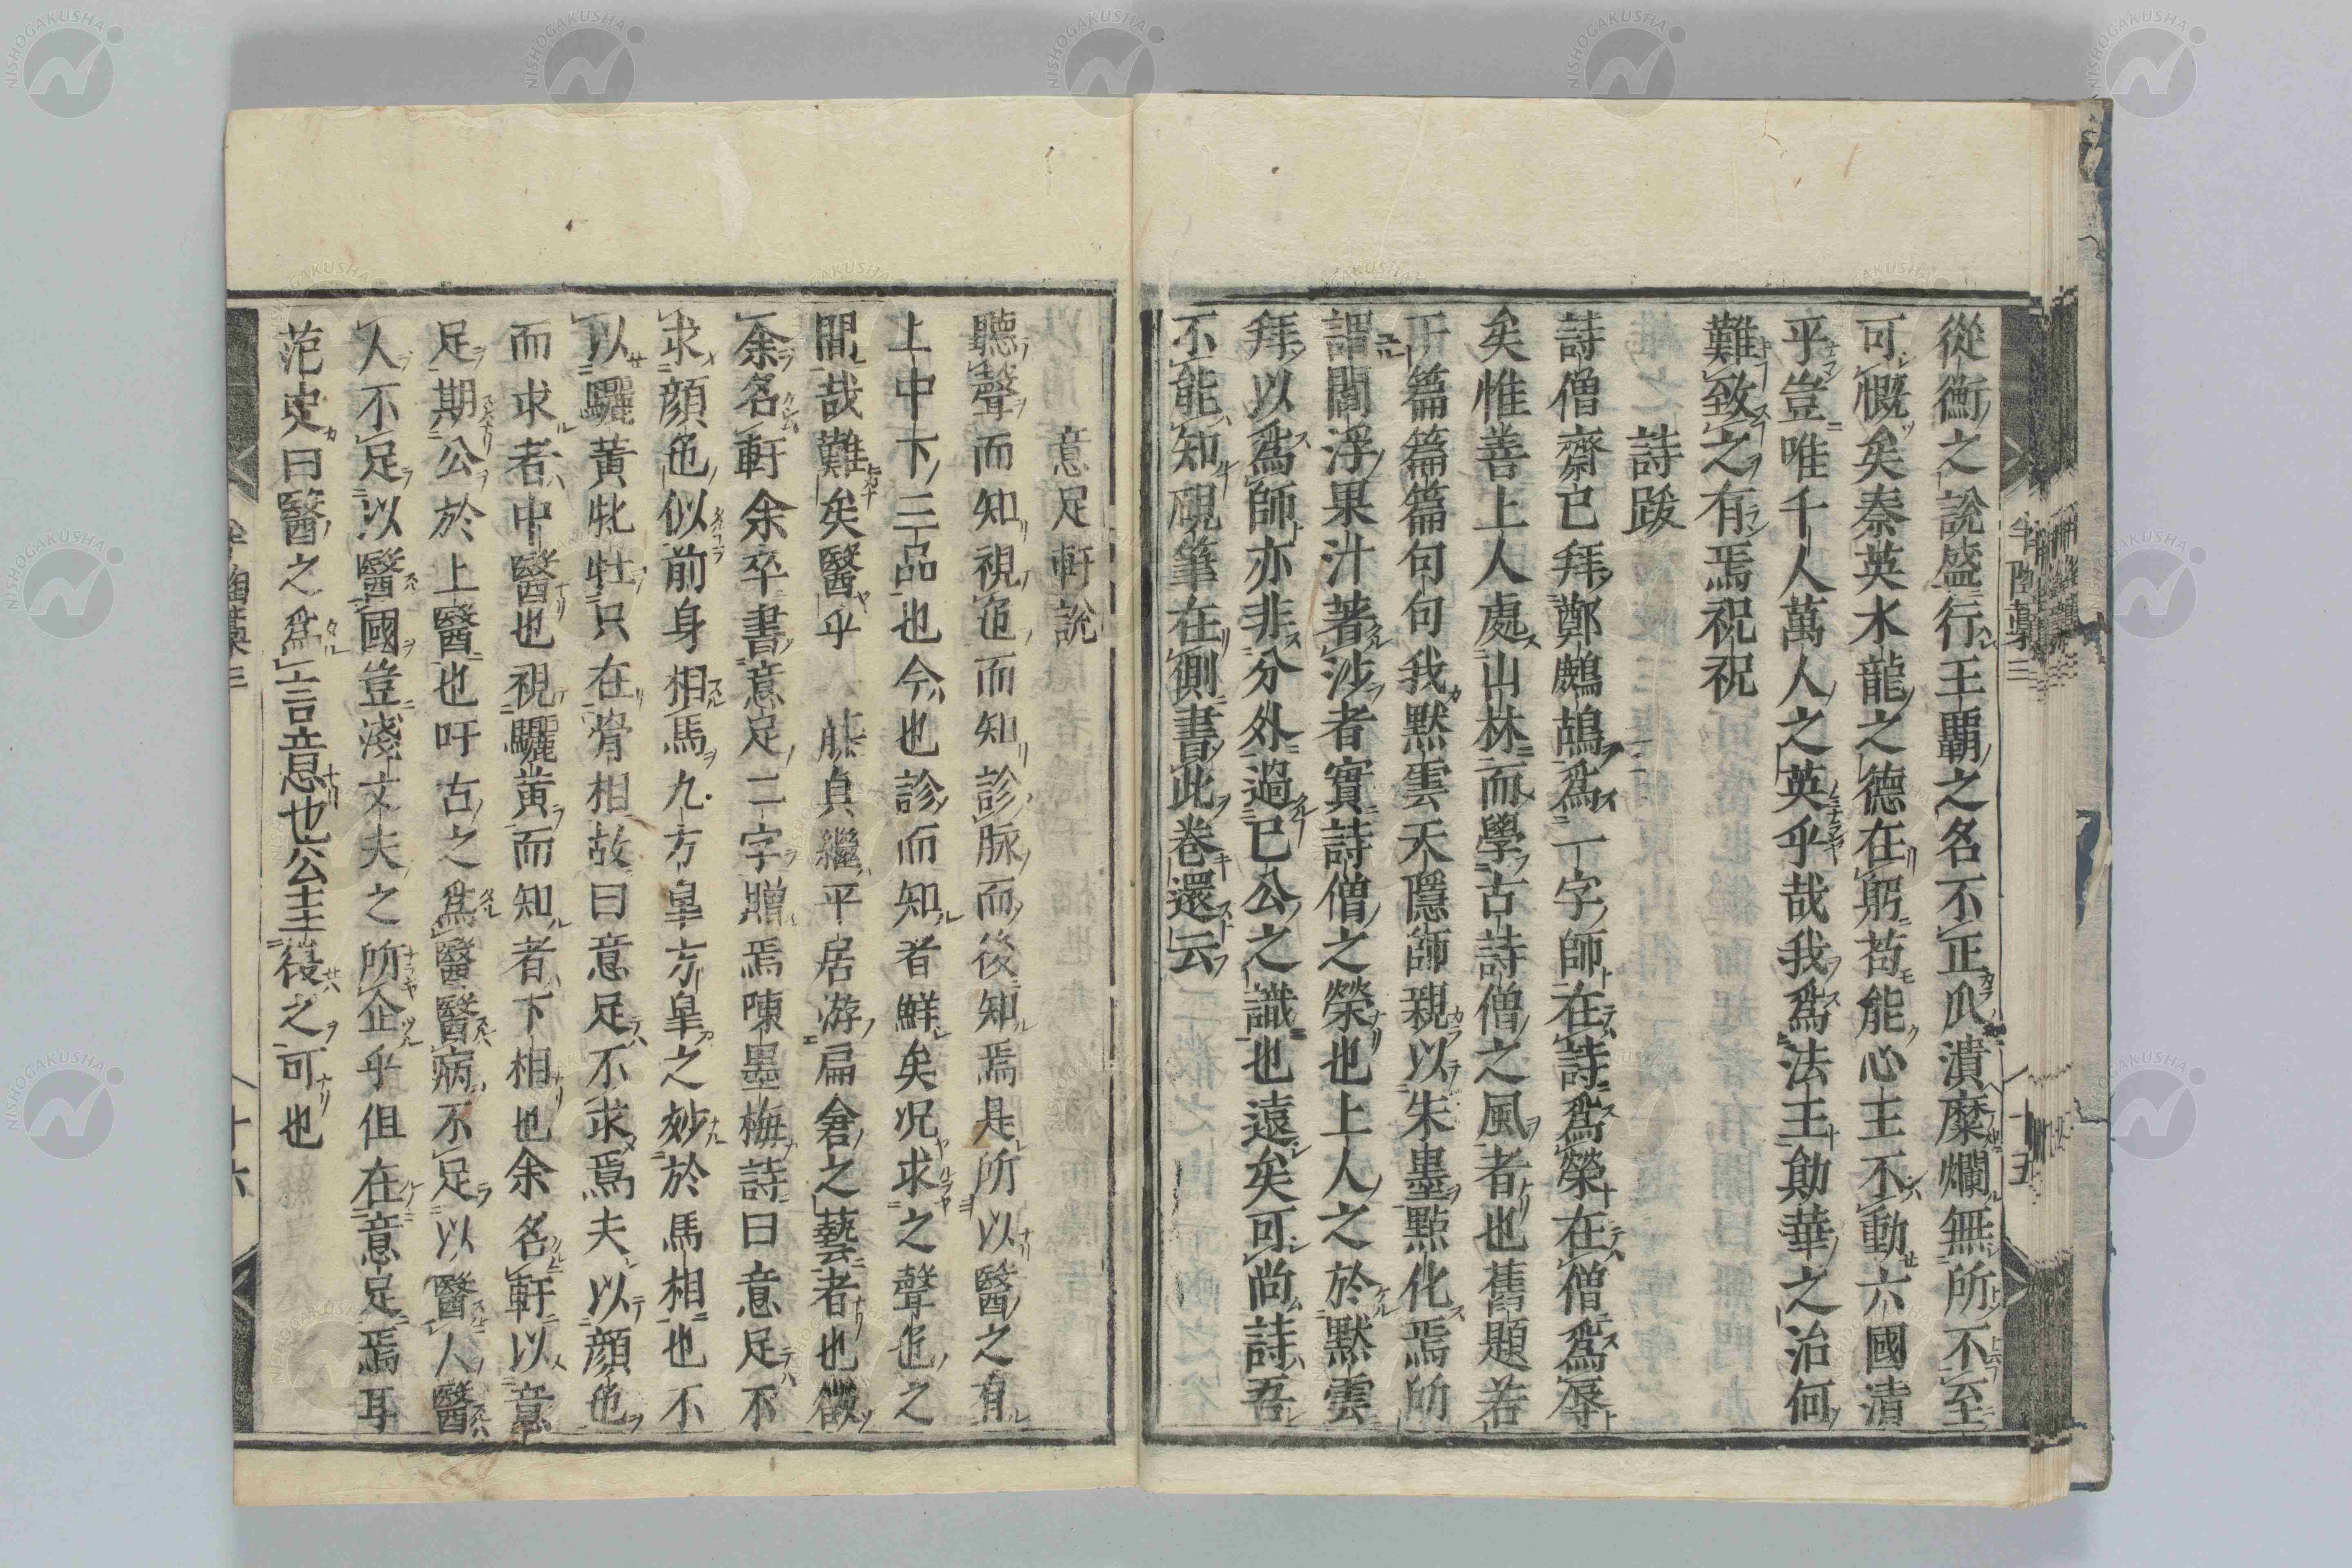 從衡之說盛行王覇之名不正爪潰糜爛無所不至
可慨矣秦英木龍之德在躬苟能心主不動六國清
乎豈唯千人萬人之英乎哉我爲法王勛華之治何
難致之有焉祝祝
詩跋
詩僧齋已拜鄭鷓鴣爲一字師在詩爲榮在僧爲辱
矣惟善上人處山林而學古詩僧之風者也舊題若
干篇篇篇句句我默雲天隱師親以朱墨點化焉所
謂閻浮果汁著沙者實詩僧之榮也上人之於默雲
拜以爲師亦非分外過已公之識也遠矣可尚詩吾
不能知硯筆在側書此卷還云
意足軒說
聽聲而知視色而知診脉而後知焉是所以醫之有
上中下三品也今也診而知者鮮矣况求之聲色之
間哉難矣醫乎 藤貞繼平居游扁倉之藝者也徵
余名軒余卒書意足二字贈焉陳墨梅詩曰意足不
求顔色似前身相馬九方皐方皐之妙於馬相也不
以驪黄牝牡只在骨相故曰意足不求焉夫以顔色
而求者中醫也視驪黄而知者下相也余名軒以意
足期公於上醫也吁古之爲醫醫病不足以醫人醫
人不足以醫國豈淺丈夫之所企乎但在意足焉耳
范史曰醫之爲言意也公圭複之可也
半陶藁三
十五
十六
NISHOGAKUSHA